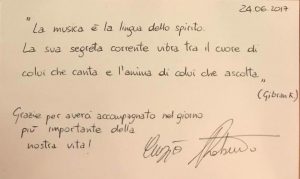 24.06.2017
"La musica è la lingua dello spirito.
La sua segreta corrente vibra tra il cuore di
colui che canta e l'anima di colui che ascolta."
(Gibran K)
Grazie per averci accompagnato nel giorno
più importante della
nostra vita!